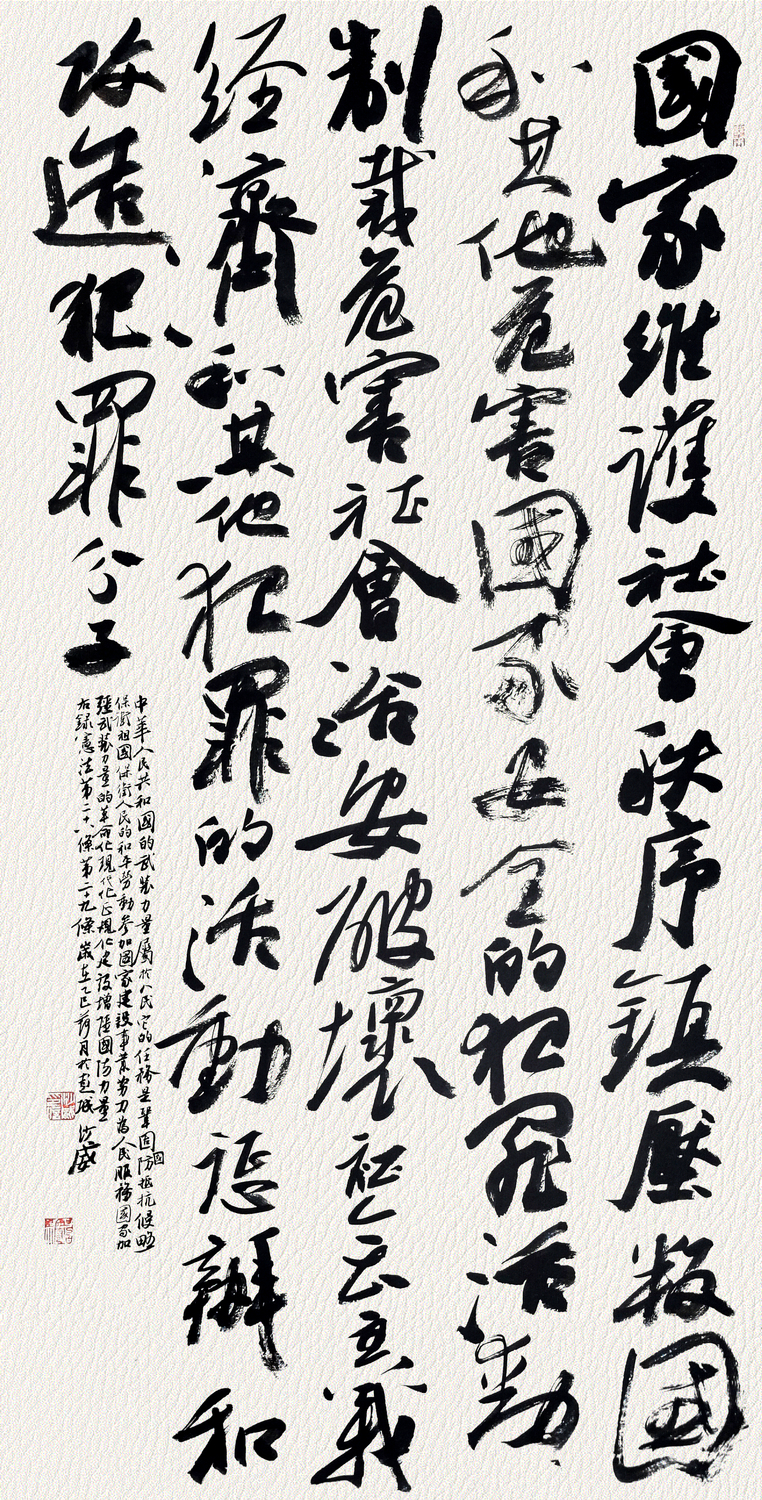 國家維護社會秩序鎮壓叛國
和其他危害國家安全的犯罪活動
制裁危害社會治安破壞社会主義
经濟和其他犯罪的活動懲辦和
改造犯罪分子
中華人民共和國的武裝力量屬於人民它的任務是鞏固國防抵抗侵略
保衛祖國保衛人民的和平勞動參加國家建設事業努力為人民服務國家加
強武裝力量的革命化現代化正規化建設增強國防力量
右録憲法第二十八條第二十九條歲在乙巳荷月於 城 沙威